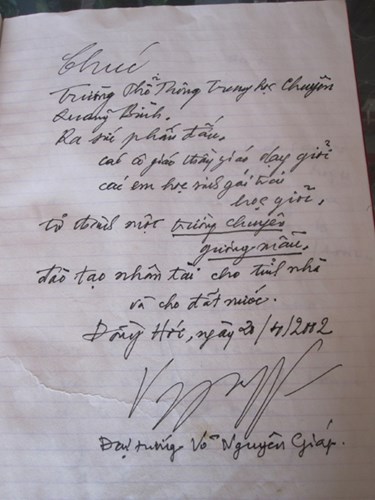 Chúc
Trường Phổ Thông Trung học Chuyên
Quảng Bình.
Ra sức phấn đấu,
các cô giáo thầy giáo dạy giỏi
các em học sinh gái trai
học giỏi,
trở thành một trường chuyên
gương mẫu,
đào tạo nhân tài cho tỉnh nhà
và cho đất nước.
Đồng Hới, ngày
Đại tướng Võ Nguyên Giáp.